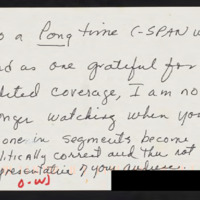 o a Long time C-SPAN w
nd as one grateful for
dited coverage, I am no
onger watching when you
one in segments become
litically correct and thus not
presentative of your audience.
O.W.